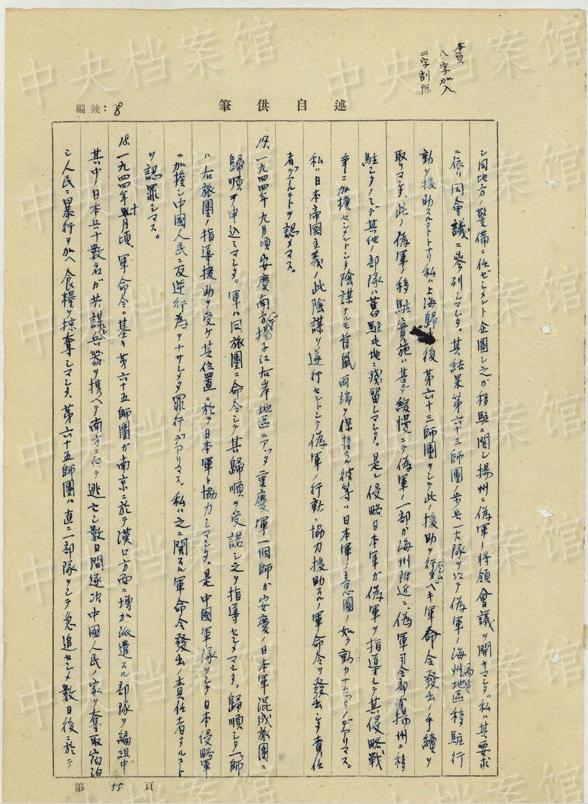 中央档案馆
本頁
八字加入
二字削除
編號：8
筆供自述
シ同地方ノ警備ニ任ゼシメント企圖シ之ガ移駐ニ関シ揚州ニ偽軍ノ将領會議ヲ開キマシタ。私ハ其要求
ニ依リ同會議ニ参列シマシタ。其結果第六十三師團ノ歩兵一大隊ヲ以テ偽軍ノ海州地区移駐行
動ヲ援助スルコトトナリ私ハ上海歸還後第六十三師團ヲシテ此ノ援助ヲ行ハシムベキ軍命令發出ノ手續ヲ
取リマシタ。此ノ偽軍ノ移駐實施ハ甚ダ緩慢ニテ偽軍ノ一部ガ海州附近ニ、偽軍司令部ガ揚州ニ移
駐シタノミデ其他ノ部隊ハ舊駐屯地ニ残留シマシタ。是レ侵略日本軍ガ偽軍ヲ指導シテ其侵略戰
争ニ加擔セシメントシタ陰謀ナルモ首鼠両端ヲ保持スル彼等ハ日本軍ノ意圖ノ如ク動カナカッタノデアリマス。
私ハ日本帝国主義ノ此陰謀ヲ遂行セントシテ偽軍ノ行動ニ協力援助スルノ軍命令ヲ發出シタ責任
者タルコトヲ認メマス。
17、一九四四年九月頃安慶南方揚子江右岸地区ニアッタ重慶軍一個師ガ安慶ノ日本軍混成旅團ニ
歸順ヲ申込ミマシタ。軍ハ同旅團ニ命令シテ其歸順ヲ受諾シ之ヲ指導セシメマシタ。歸順シタ一師
ハ右旅團ノ指導援助ヲ受ケ其位置ニ於テ日本軍ト協力シマシタ。是中國軍隊ヲシテ日本侵略軍
ニ加擔シ中國人民ニ反逆行為ヲナサシメタ罪行デアリマス。私ハ之ニ関スル軍命令發出ノ責任者タルコト
ヲ認罪シマス。
18、一九四四年十月頃軍命令ニ基キ第六十五師團ガ南京ニ於テ漢口方面ニ増加派遣スル部隊ヲ編組中
其中ノ日本兵十数名ガ共謀シ兵器ヲ携ヘテ南方ニ向テ逃亡シ数日間逐次中國人民ノ家ヲ奪取宿泊
シ人民ニ暴行ヲ加ヘ食糧ヲ掠奪シマシタ。第六十五師團ハ直ニ一部隊ヲシテ急追セシメ数日後ニ於テ
第 55 頁